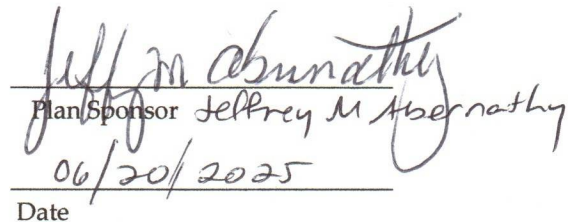 Jeffrey M Abernathy
Plan Sponsor Jeffrey M Abernathy
06/20/2025
Date